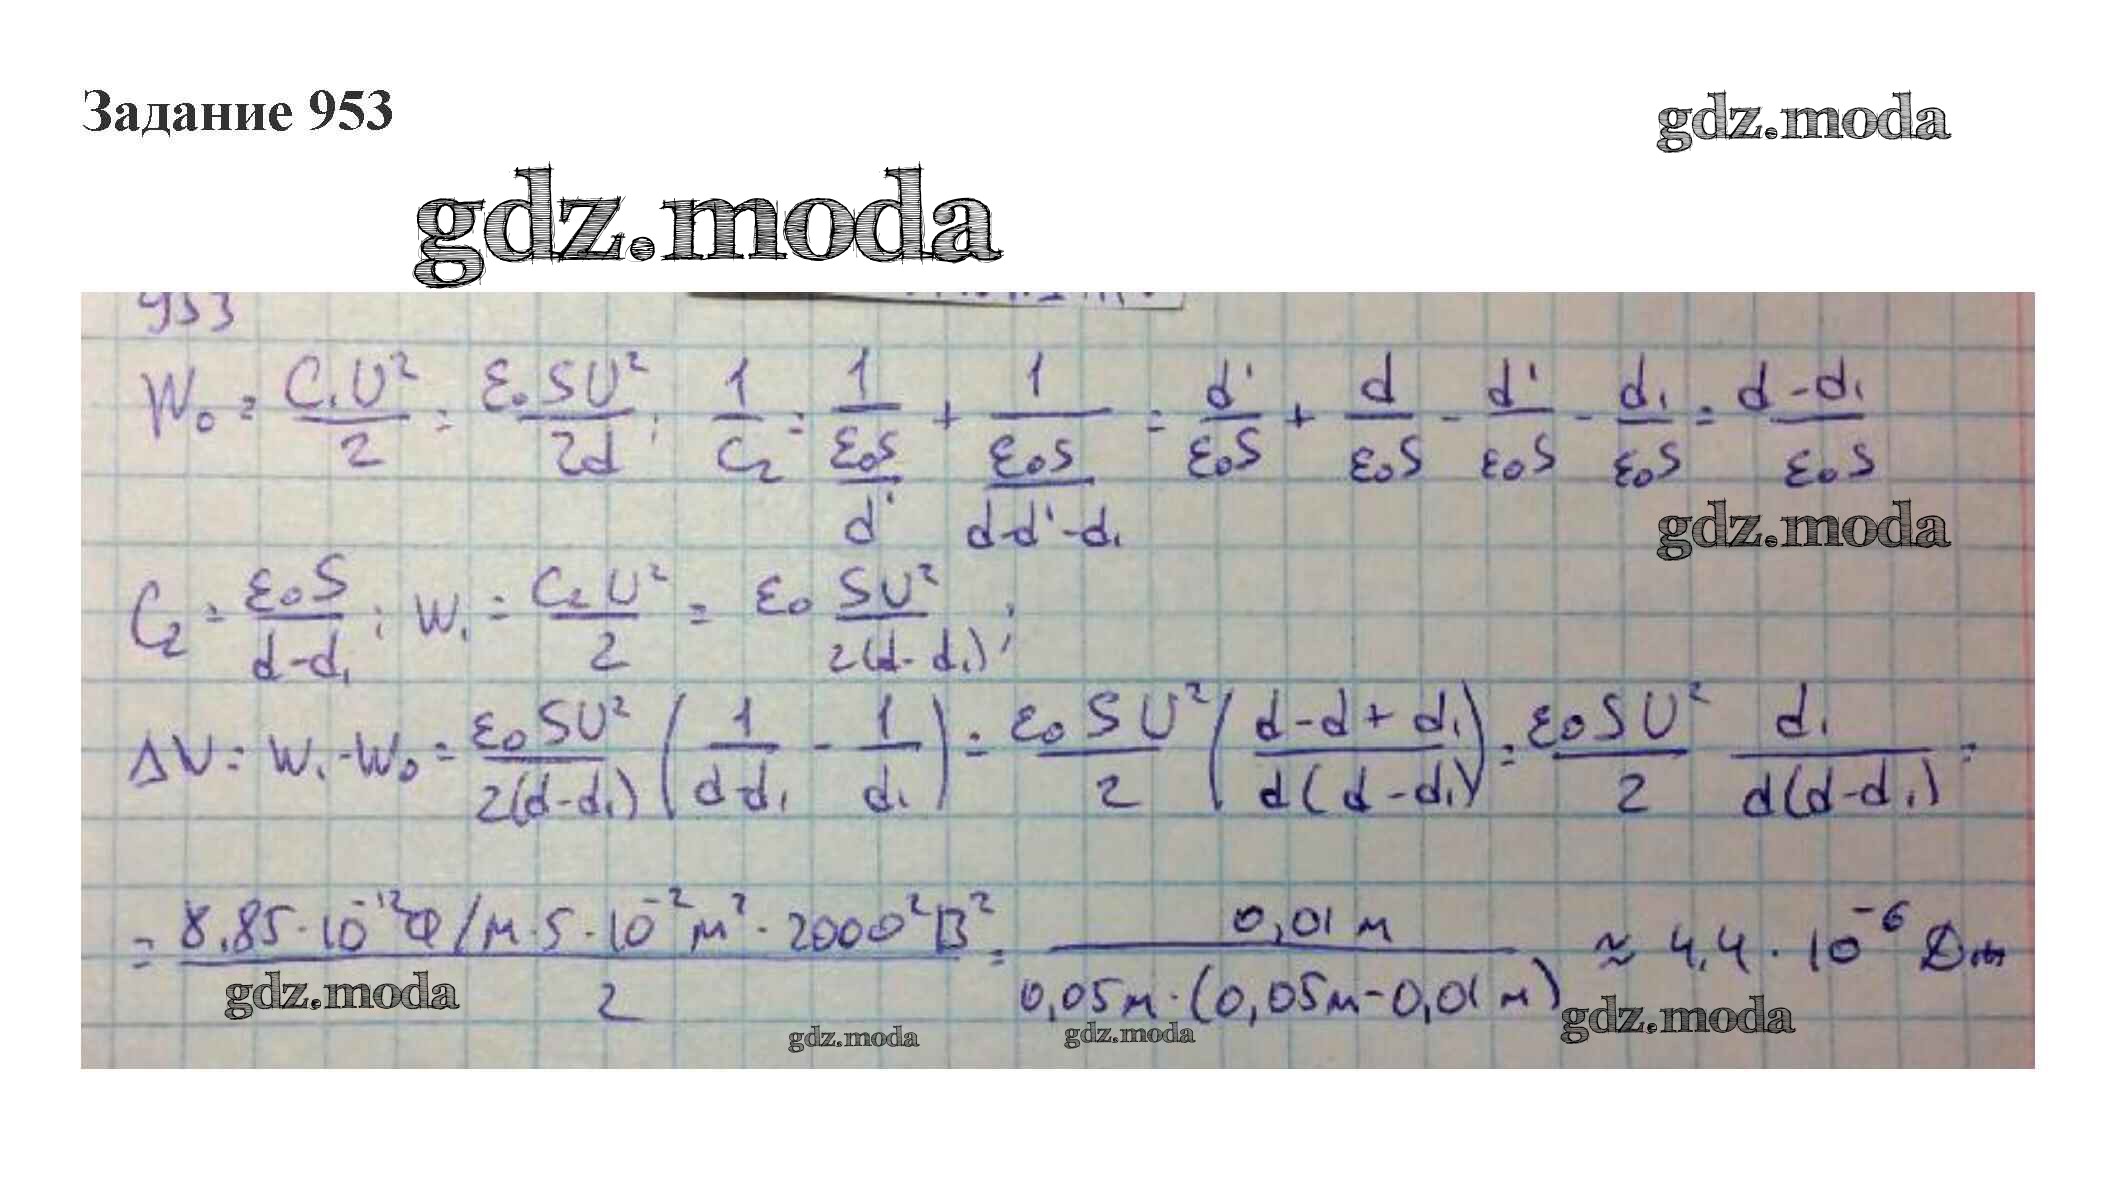 Задание 953
gdz.moda
gdz.moda
953
W₀ = C₁U²/2 = ε₀SU²/2d; 1/C₂ = 1/(ε₀S/d') + 1/(ε₀S/(d-d'-d₁)) = d'/ε₀S + d/ε₀S - d'/ε₀S - d₁/ε₀S = (d-d₁)/ε₀S
gdz.moda
C₂ = ε₀S/(d-d₁); W₁ = C₂U²/2 = ε₀ SU²/2(d-d₁);
ΔW = W₁-W₀ = ε₀SU²/2(d-d₁) (1/(d-d₁) - 1/d₁) = ε₀SU²/2 ((d-d+d₁)/d(d-d₁)) = ε₀SU²/2 d₁/d(d-d₁) =
= 8,85·10⁻¹²Ф/м·5·10⁻²м²·2000²В²/2 = 0,01м/0,05м·(0,05м-0,01м) ≈ 4,4·10⁻⁶ Дж
gdz.moda
gdz.moda
gdz.moda
gdz.moda